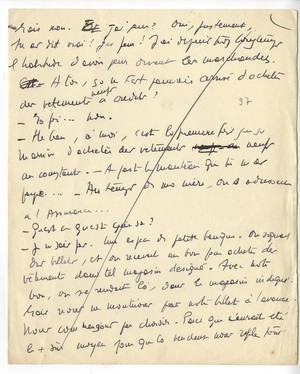 Mais non. Et j'ai peur? Oui, justement,
tu as dit vrai! J'ai peur! J'ai depuis très longtemps
l'habitude d'avoir peur devant les marchandes.
Alors, ça ne t'est jamais arrivé d'acheter
des vêtements neufs à crédit?
97
– Ma foi... non.
– Eh bien, à moi, c'est la première fois que je
m'avise d'acheter des vêtements neufs
au comptant. – A part le manteau que tu m'as
payé... – Au temps de ma mère, on s'adressait
à l'Assurance...
– Qu'est-ce que c'est que ça?
– Je ne sais pas. Une espèce de petite banque. On signait
des billets, et on recevait un bon pour acheter des
vêtements dans tel magasin désigné. Avec notre
bon, on se rendait là, dans le magasin indiqué.
Mais nous ne montrions pas notre billet à l'avance.
Nous commencions par choisir. Parce que ç'aurait été
le + sûr moyen pour que la vendeuse nous